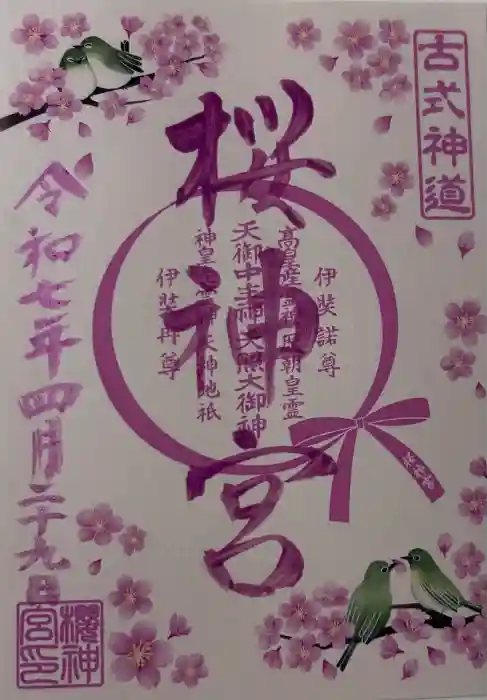 古式神道
桜神宮
伊奘諾尊
高皇産霊神 歴朝皇霊
天御中主神 天照大御神
神皇産霊神 天神地祇
伊奘冉尊
桜神宮
令和七年四月二十九日
櫻神宮印